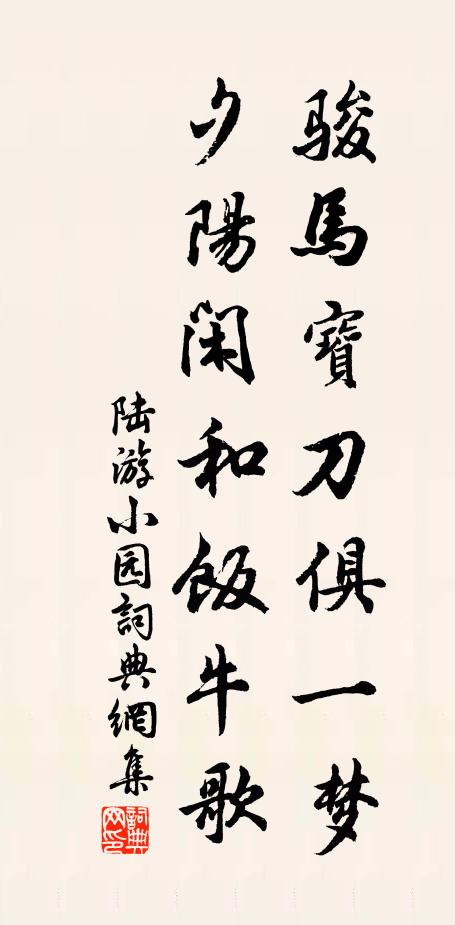 骏馬寶刀俱一梦
夕陽闲和飯牛歌
陆游小园詞典網集
詞典網印